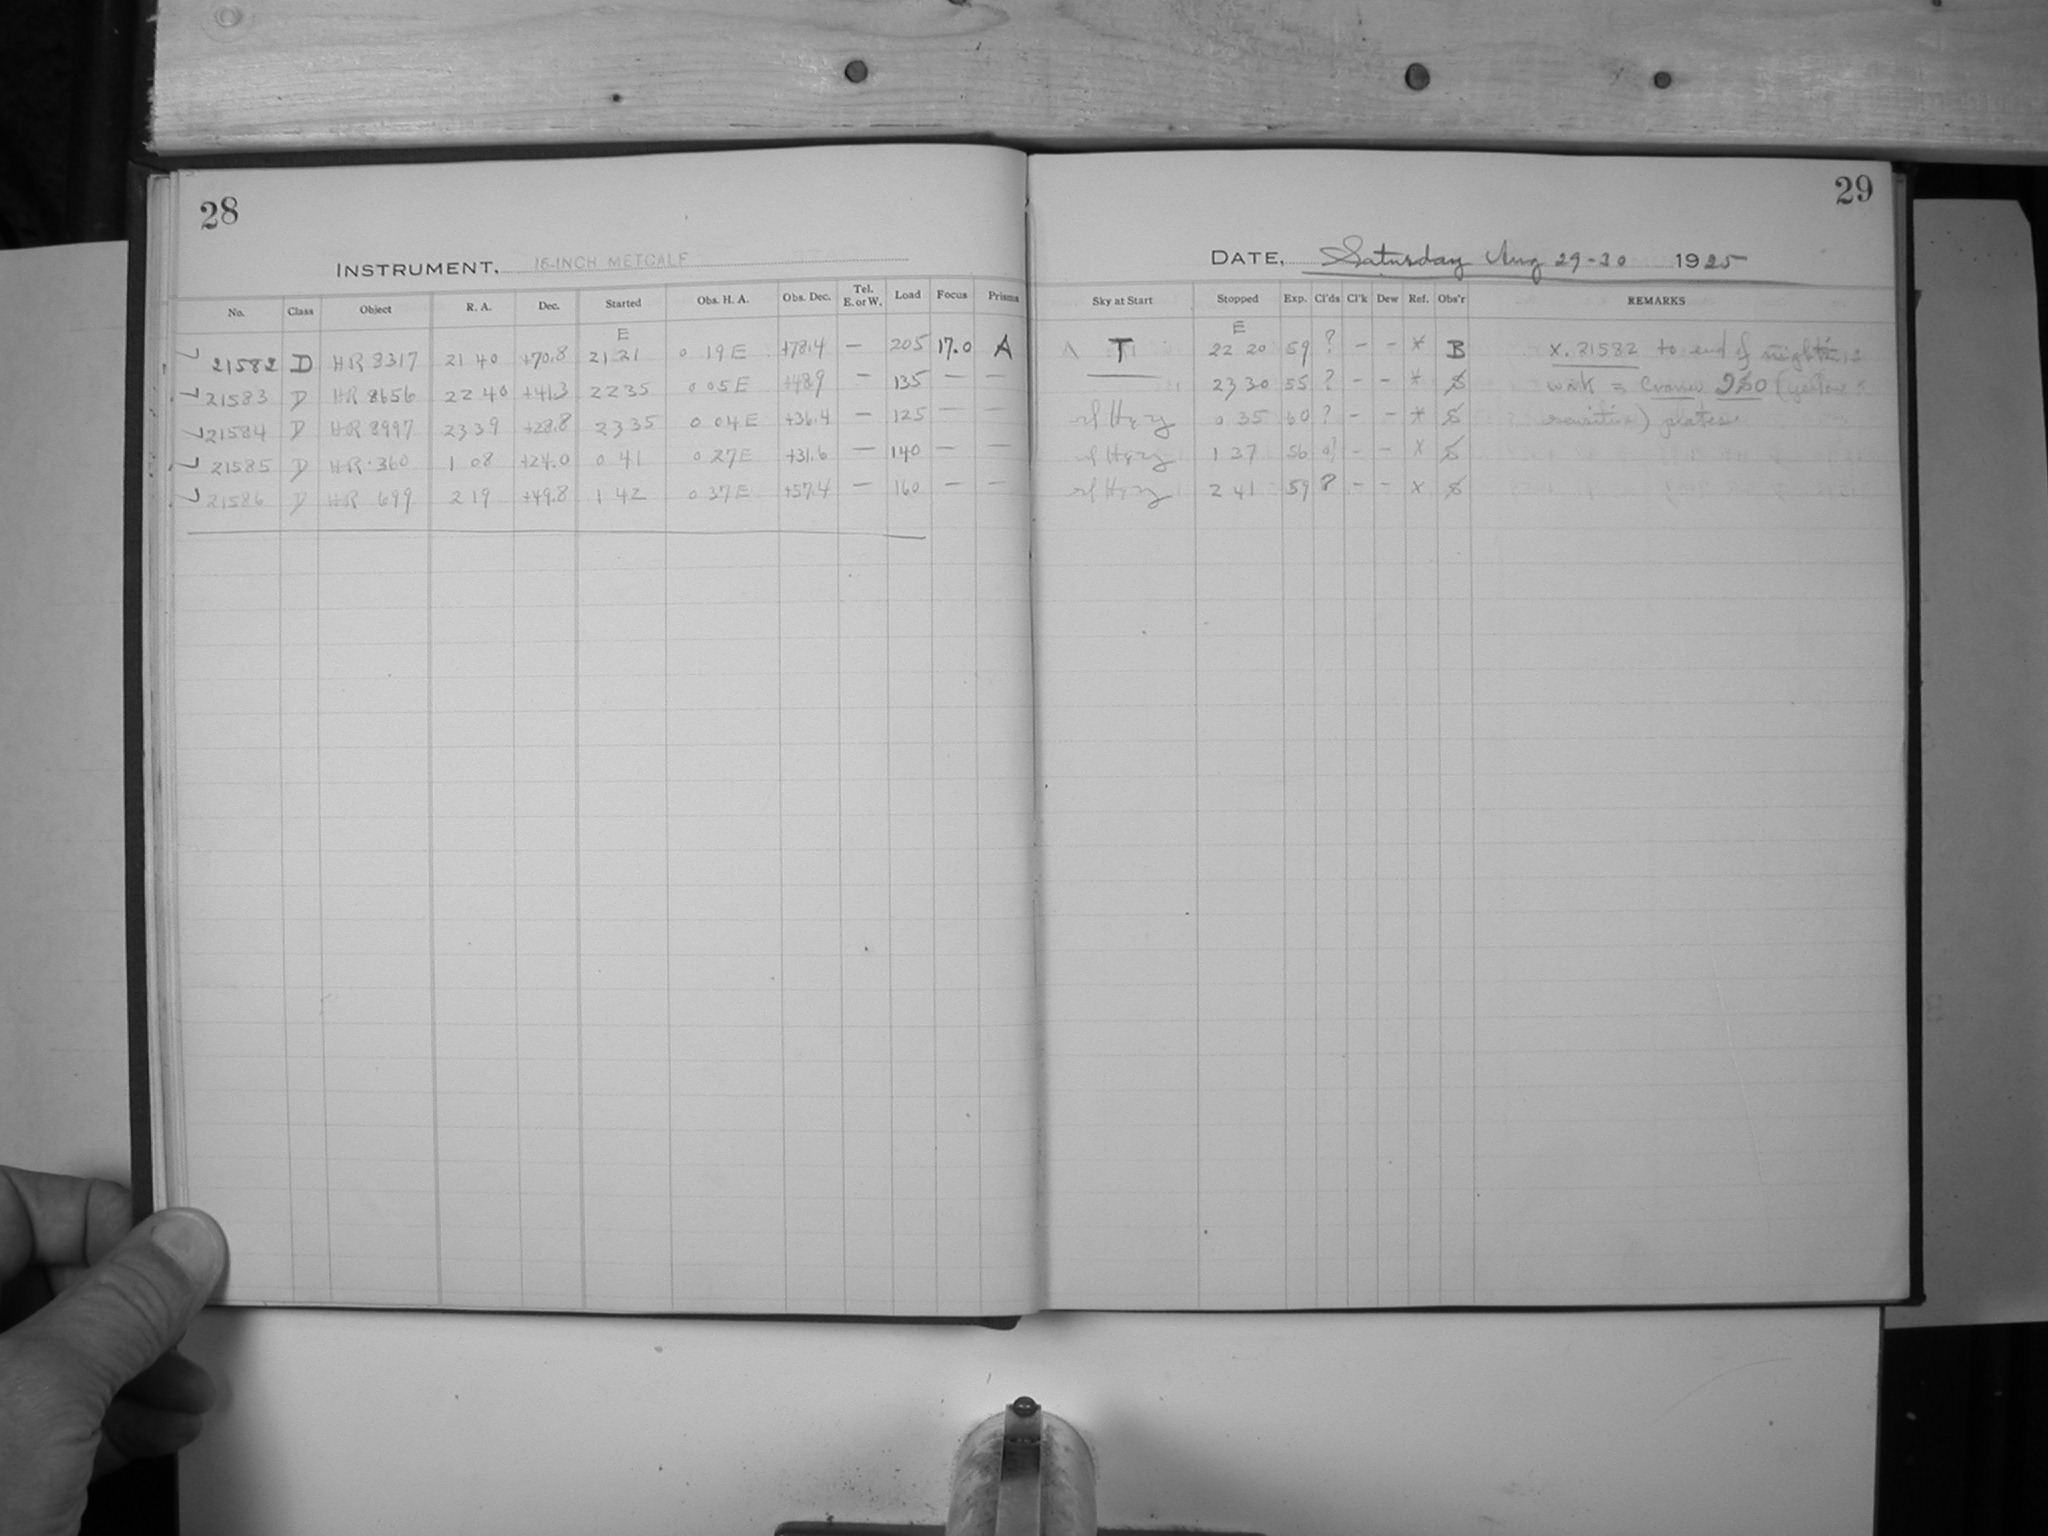 28
INSTRUMENT, 16-INCH METCALF
No. Class Object R. A. Dec. Started Obs. H. A. Obs. Dec. Tel. E. or W. Load Focus Prisms
E
21582 D HR 8317 21 40 +70.8 21 21 0 19 E +78.4 — 205 17.0 A
21583 D HR 8656 22 40 +41.3 22 35 0 05 E +48.9 — 135 — —
21584 D HR 8997 23 39 +28.8 23 35 0 04 E +36.4 — 125 — —
21585 D HR 360 1 08 +24.0 0 41 0 27 E +31.6 — 140 — —
21586 D HR 699 2 19 +49.8 1 42 0 37 E +57.4 — 160 — —
29
DATE, Saturday Aug 29-30 1925
Sky at Start Stopped Exp. Cl'ds Cl'k Dew Ref. Obs'r REMARKS
E
T 22 20 59 ? - - * B X. 21582 to end of night's
23 30 55 ? - - * work = Cramer (yellow
sl Hazy 0 35 60 ? - - * sensitive) plates.
sl Hazy 1 37 56 - - x
sl Hazy 2 41 59 ? - - x